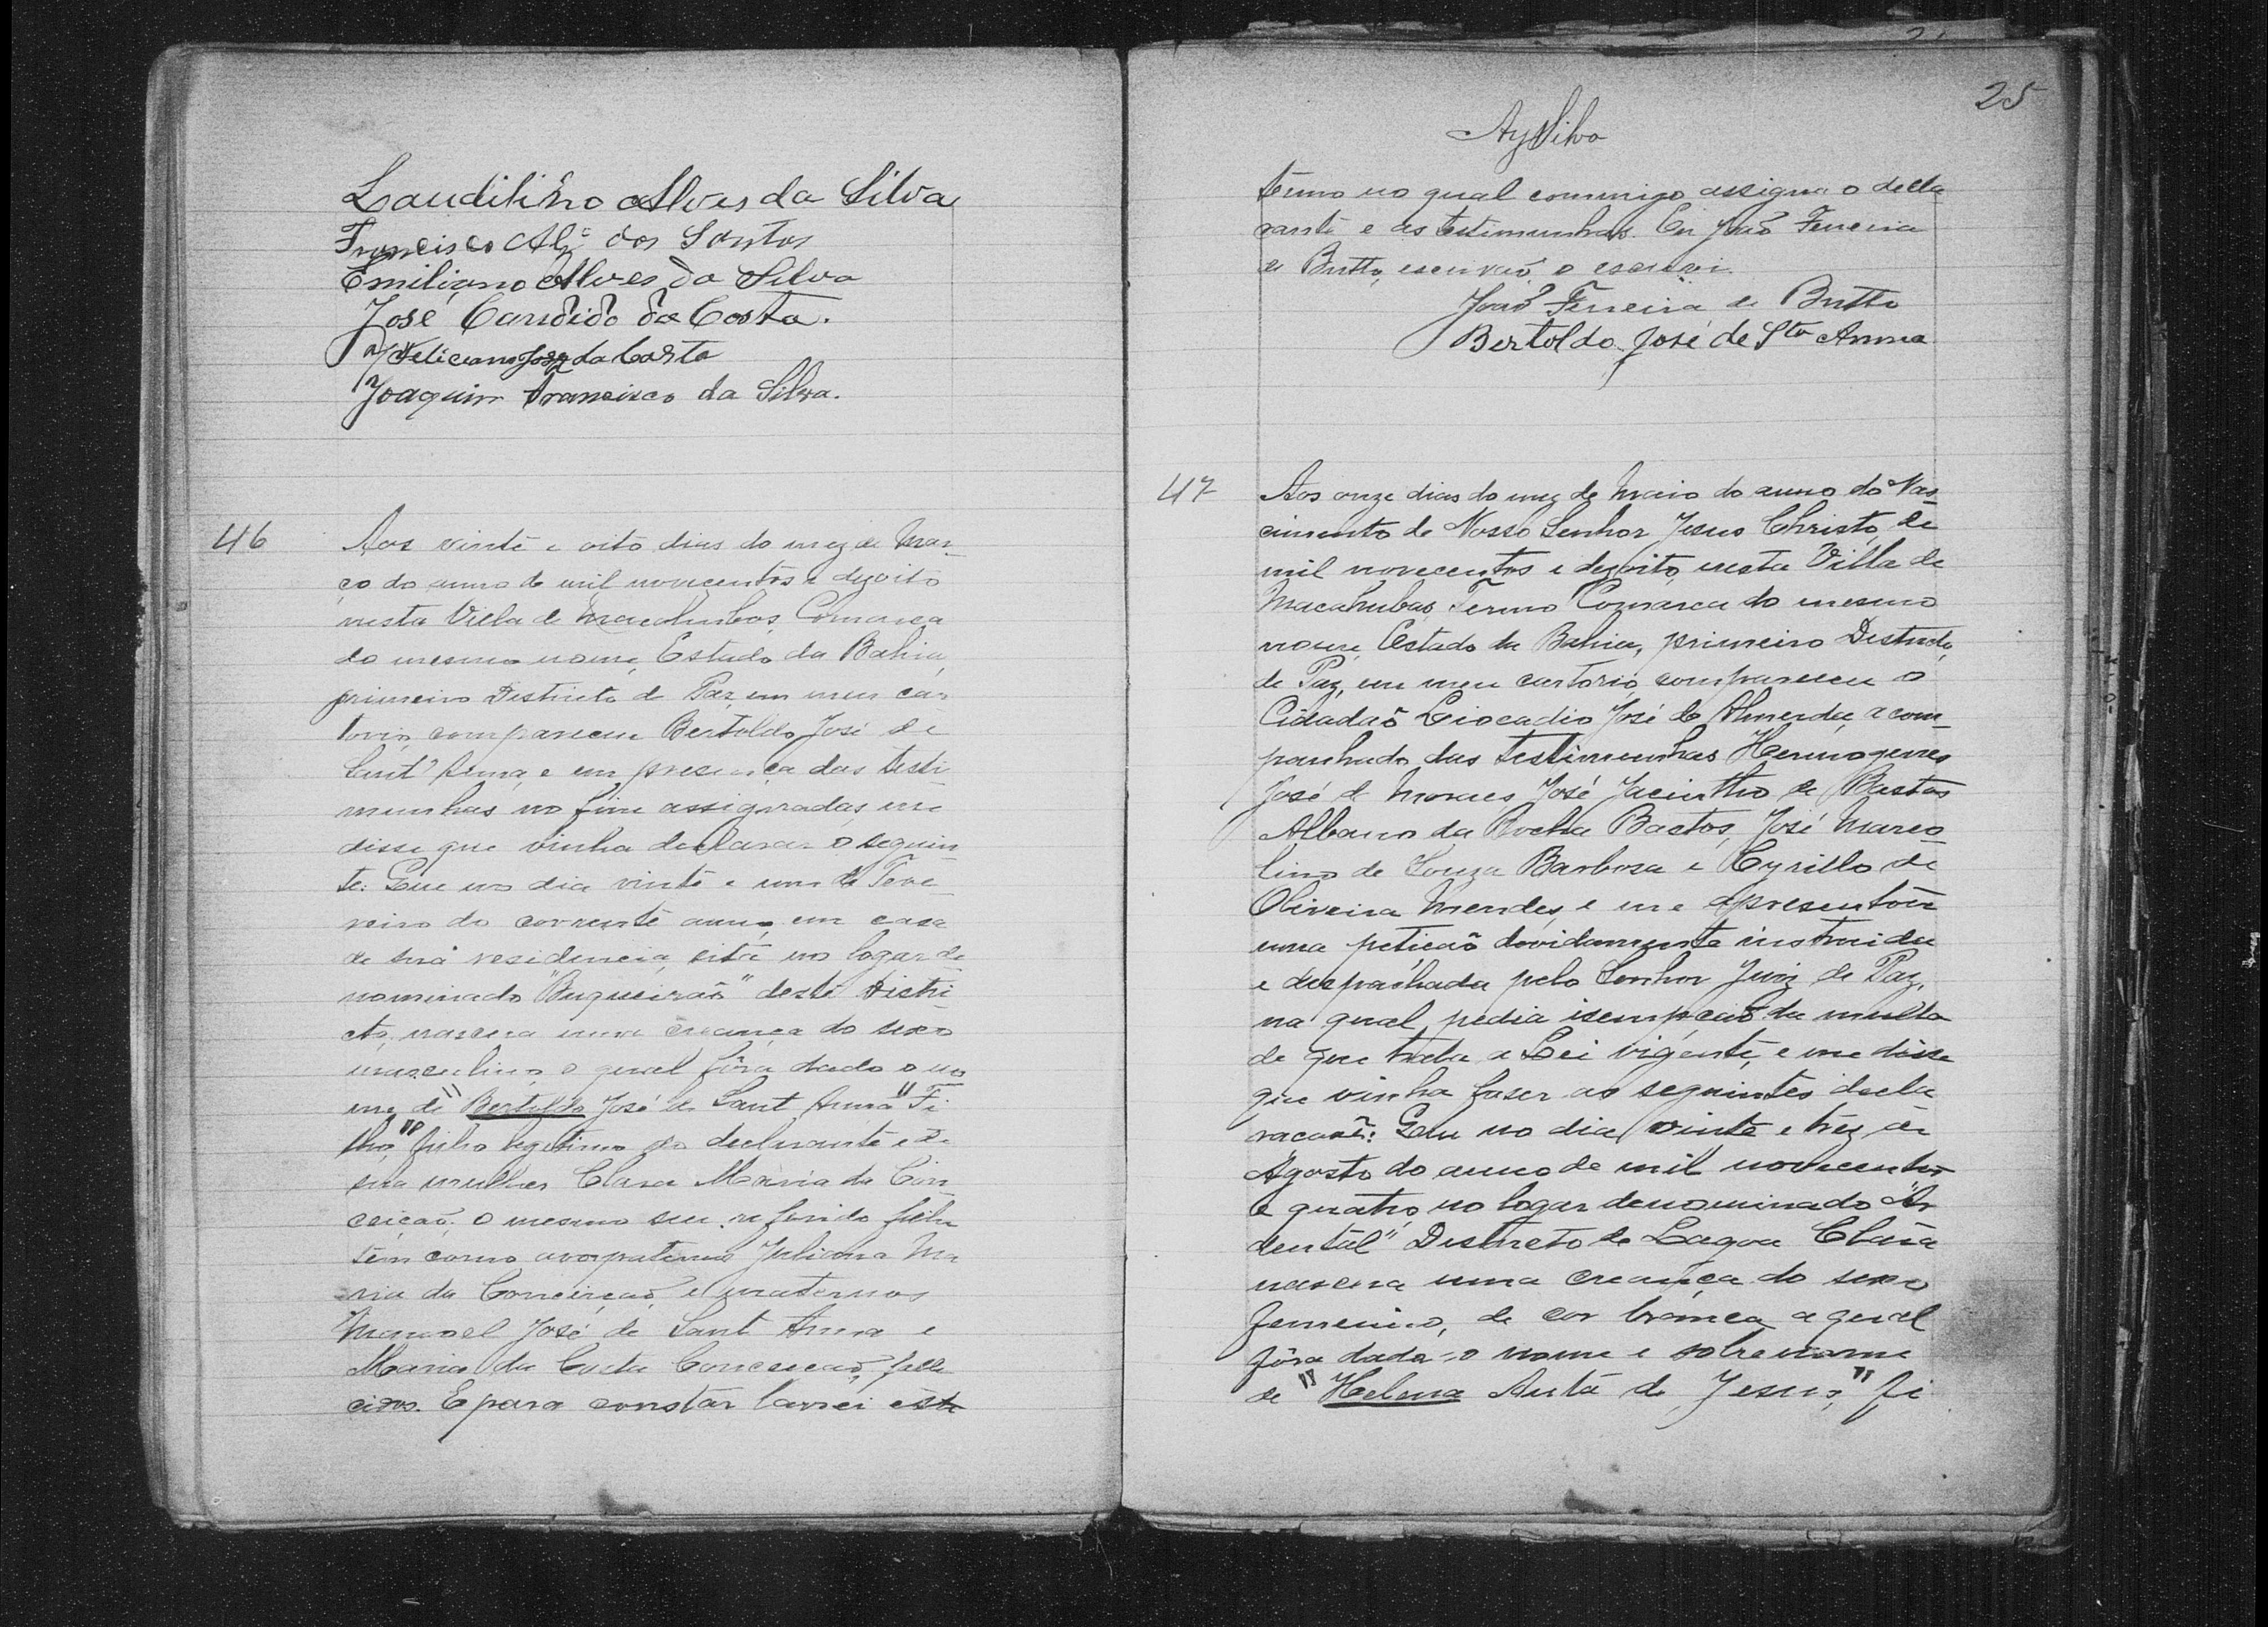 Laudilino Alves da Silva
Francisco Alz dos Santos
Emiliano Alves da Silva
José Candido da Costa.
Feliciano José da Costa
Joaquim Francisco da Silva.
46
Aos vinte e oito dias do mez de Mar-
ço do anno de mil novecentos e dezoito
nesta Villa de Macahubas, Comarca
do mesmo nome, Estado da Bahia,
primeiro Districto de Paz, em meu car
torio, compareceu Bertoldo José de
Sant' Anna, e em presença das teste
munhas no fim assignadas, me
disse que vinha declarar o seguin
te: Que no dia vinte e um de Feve
reiro do corrente anno, em casa
de sua residencia, sita no logar de
nominado "Buqueirão" deste Distri
cto, nascera uma creança do sexo
masculino, o qual fôra dado o no
me de "Bertoldo José de Sant Anna" Fi
lho" filho legitimo do declarante e de
sua mulher Clara Maria da Con
ceição. O mesmo seu referido filho
tem como avos paternos Juliana Ma
ria da Conceição, e maternos
Manoel José de Sant Anna e
Maria da Costa Conceição, falle
cidos. E para constar lavrei este
25
AySilva
termo no qual commigo assigna o decla
rante e as testemunhas. Eu João Ferreira
de Britto, escrivão o escrevi.
João Ferreira de Britto
Bertoldo José de Sta Anna
47
Aos onze dias do mez de Maio do anno do Nas
cimento de Nosso Senhor Jesus Christo, de
mil novecentos e dezoito, nesta Villa de
Macahubas, Termo Comarca do mesmo
nome, Estado da Bahia, primeiro Districto,
de Paz, em meu cartorio, compareceu o
Cidadão Leocadio José de Almeida, acom-
panhado das testimunhas Hermogenes
José de Moraes, José Jacintho de Bastos
Albano da Rocha Bastos, José Marco
lino de Souza Barbosa e Cyrillo de
Oliveira Mendes, e me apresentou
uma petição dividamente instruida
e despachada pelo Senhor Juiz de Paz,
na qual pedia isempção da multa
de que trata a Lei vigente, e me disse
que vinha faser as seguintes decla
rações: Que no dia vinte e trez de
Agosto do anno de mil novecentos
e quatro, no logar denominado
Districto de Lagoa Clara
nascera uma creança do sexo
femenino, de cor branca, a qual
fôra dado o nome e sobrenome
de "Helena Antã de Jesus," fi